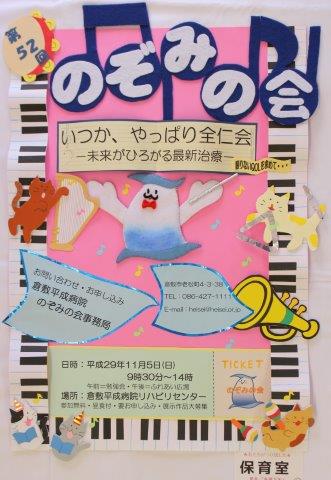 第52回
のぞみの会
いつか、やっぱり全仁会
－未来がひろがる最新治療－
お問い合わせ・お申し込み
倉敷平成病院
のぞみの会事務局
倉敷市老松町4-3-38
TEL：086-427-1111
E-mail：heisei@heisei.or.jp
日時：平成29年11月5日(日)
9時30分～14時
午前＝勉強会・午後＝ふれあい広場
場所：倉敷平成病院リハビリセンター
参加無料・昼食付・要お申し込み・展示作品大募集
TICKET
のぞみの会
保育室